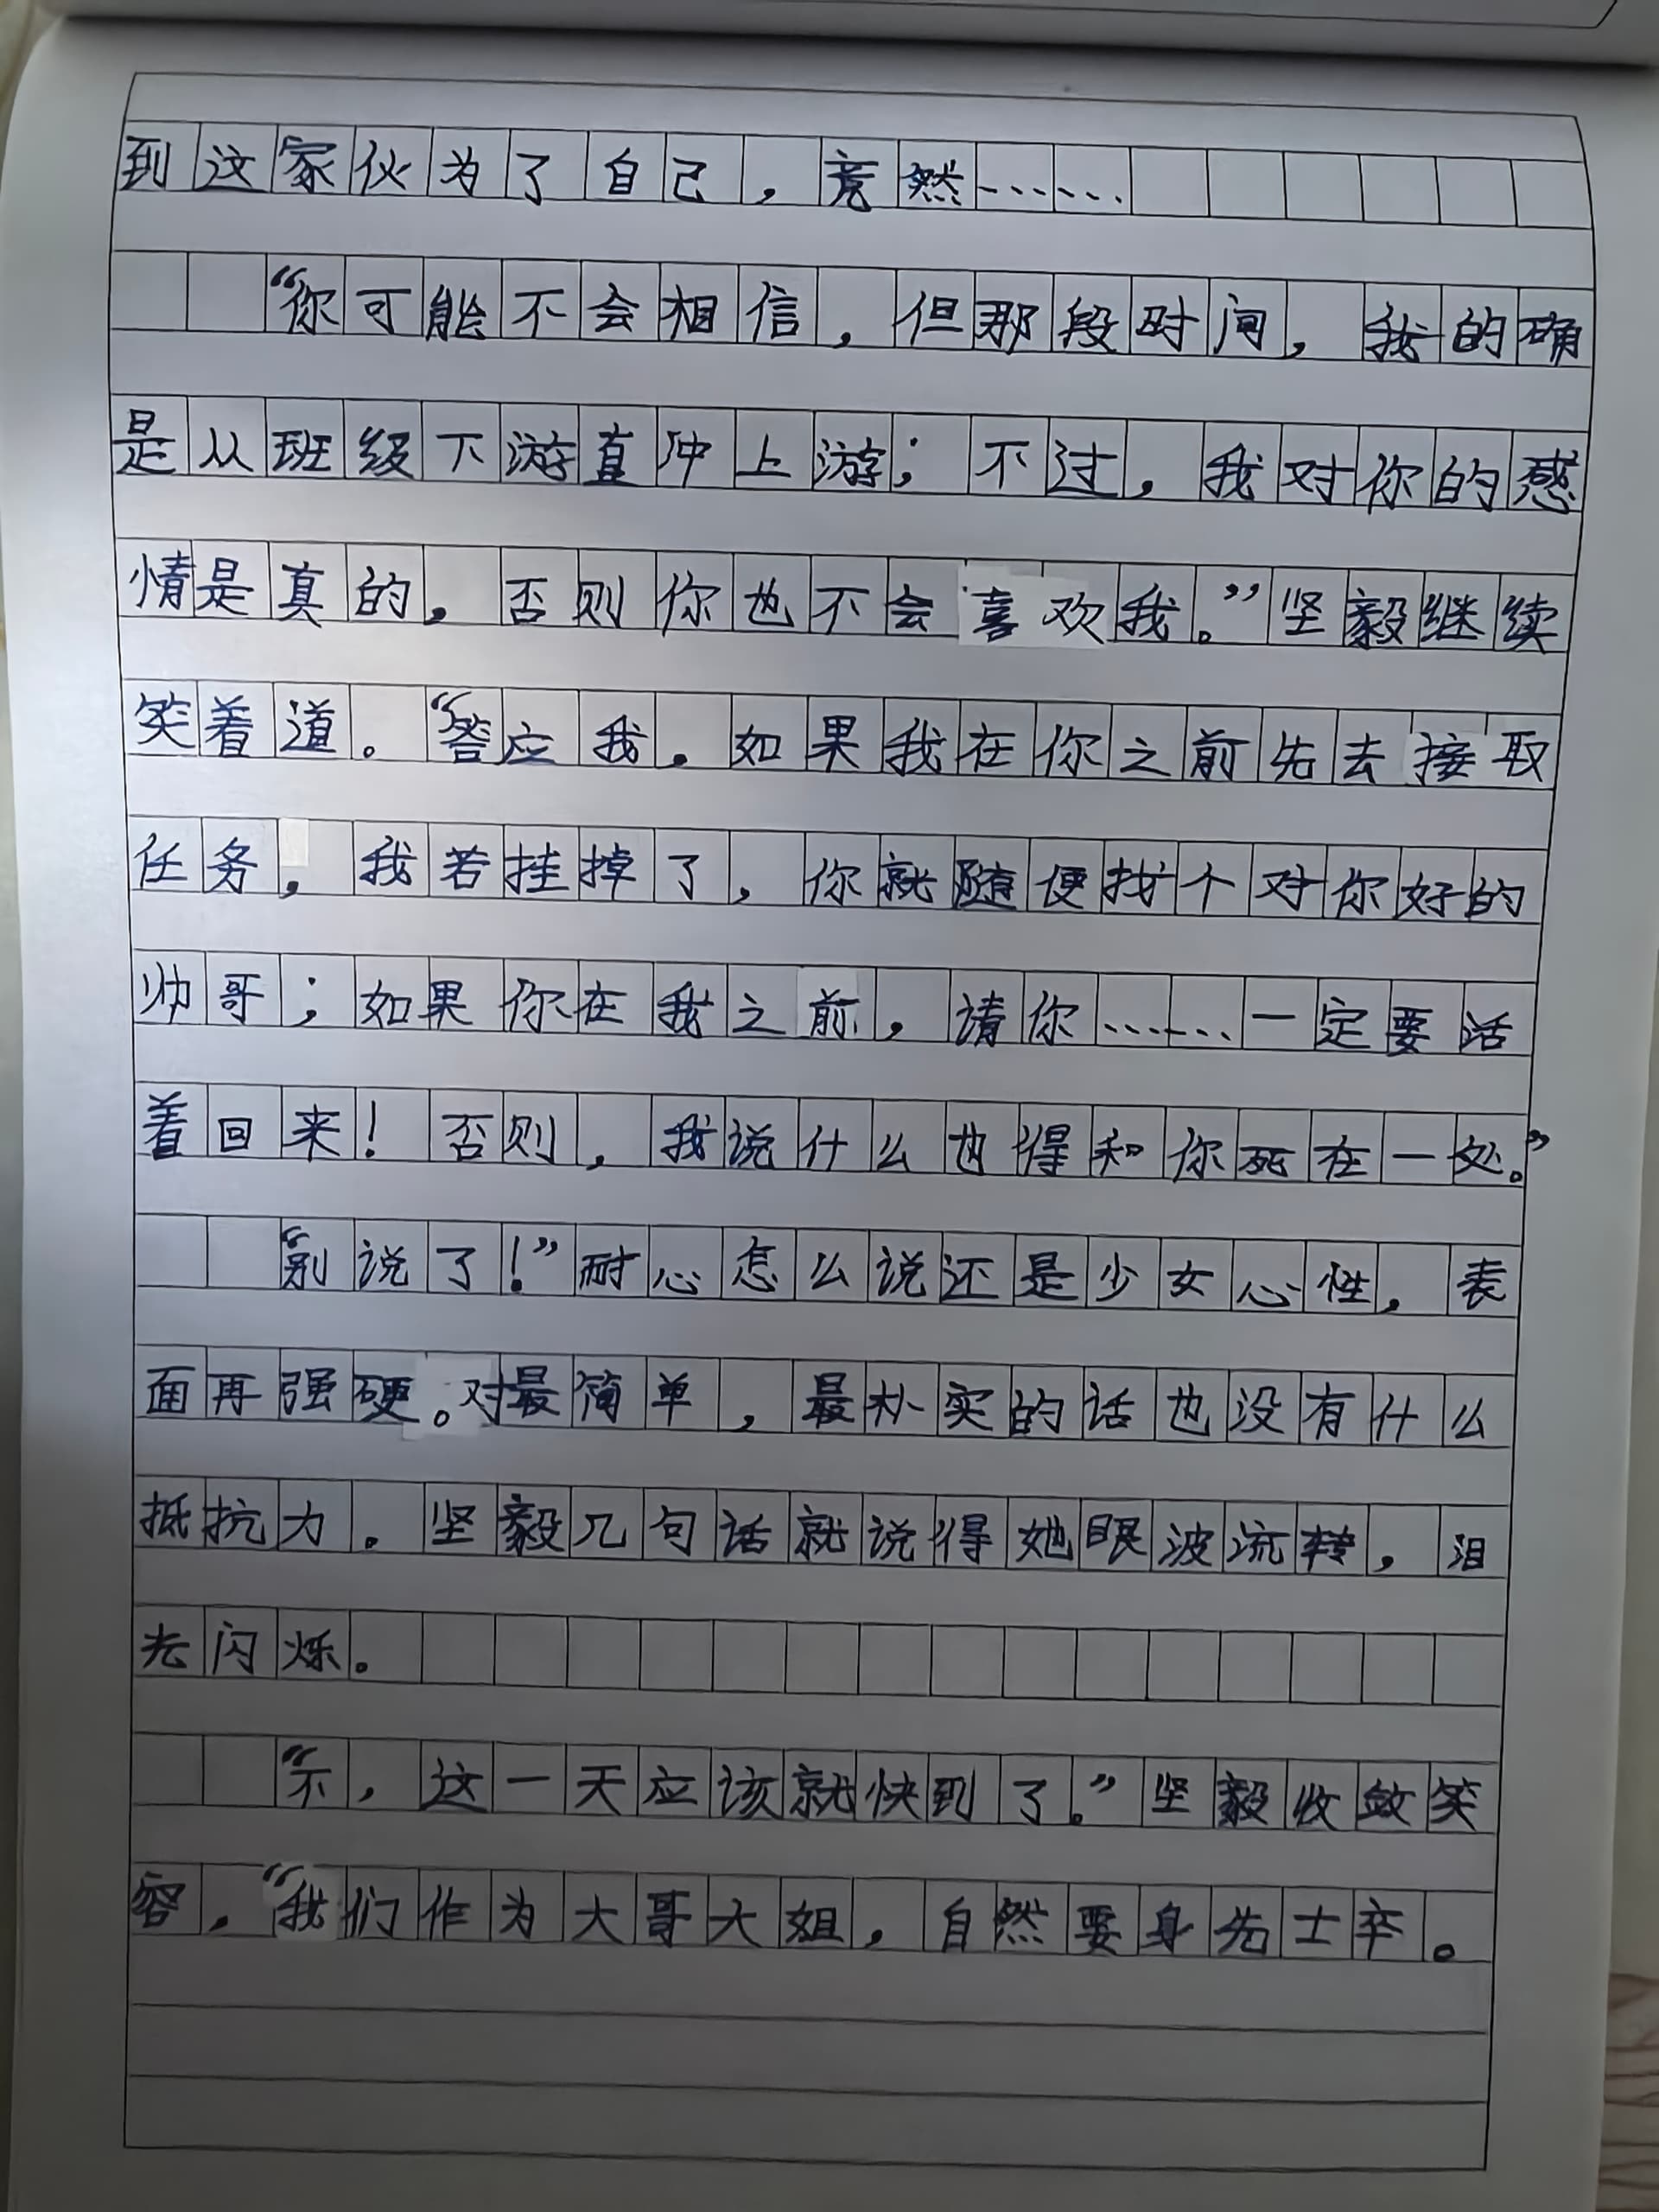 到这家伙为了自己，竟然……
“你可能不会相信，但那段时间，我的确
是从班级下游直冲上游；不过，我对你的感
情是真的，否则你也不会喜欢我。”坚毅继续
笑着道。“答应我。如果我在你之前先去接取
任务，我若挂掉了，你就随便找个对你好的
帅哥；如果你在我之前，请你……一定要活
着回来！否则，我说什么也得和你死在一处。”
“别说了！”耐心怎么说还是少女心性，表
面再强硬。对最简单，最朴实的话也没有什么
抵抗力。坚毅几句话就说得她眼波流转，泪
光闪烁。
“不，这一天应该就快到了。”坚毅收敛笑
容，“我们作为大哥大姐，自然要身先士卒。